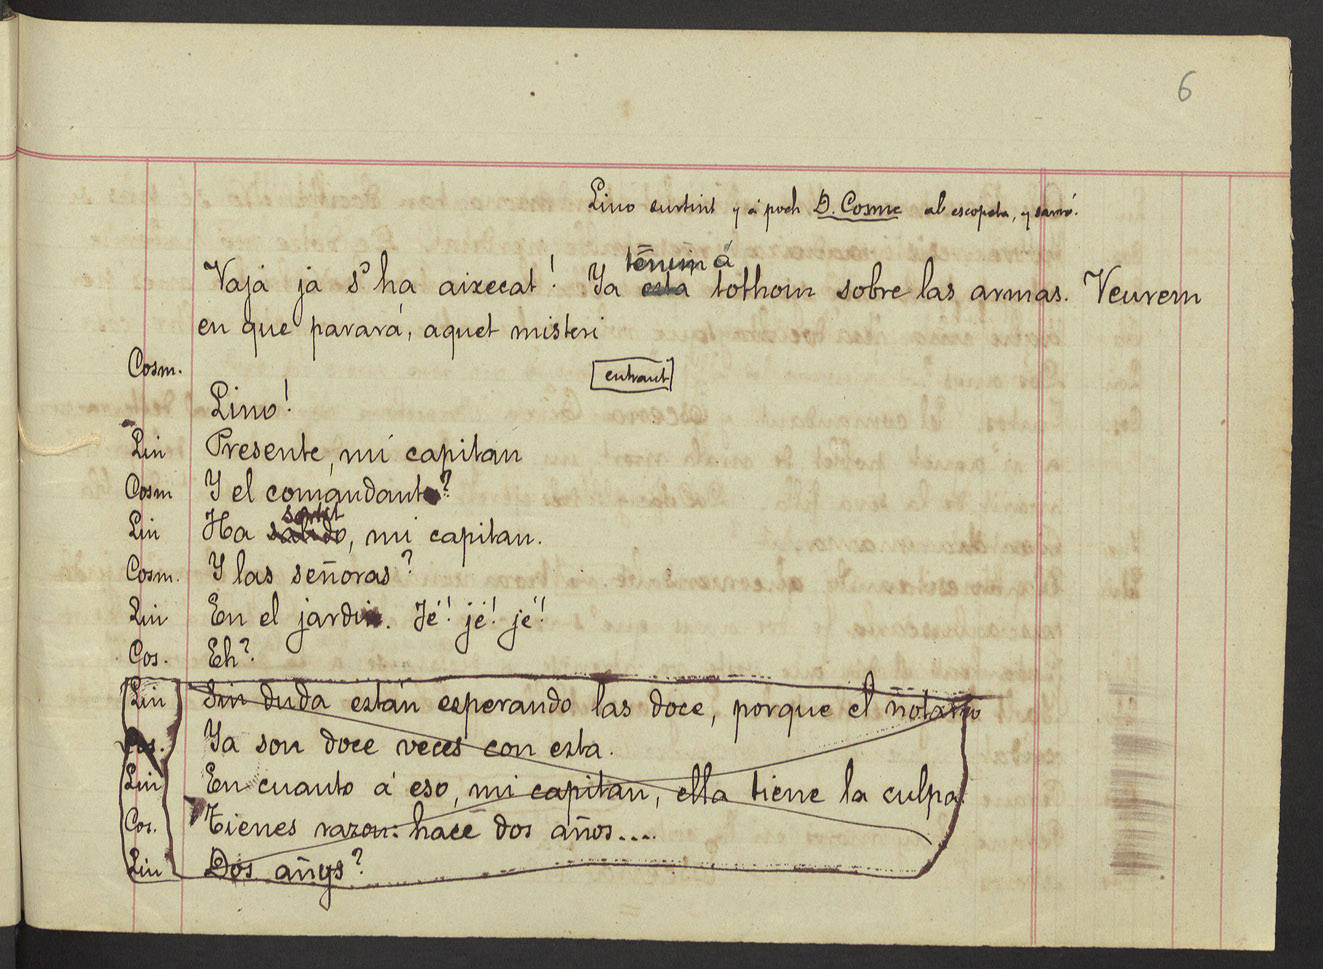 6
Lino surtint y á poch D. Cosme ab escopeta, y sarró.
tenim á
Vaja ja s'ha aixecat! Ya esta tothom sobre las armas. Veurem
en que parará, aquet misteri
Cosm.
entrant
Lino!
Lin Presente, mi capitan
Cosm Y el comandant?
sortit
Lin Ha salido, mi capitan.
Cosm. Y las señoras?
Lin En el jardin. Jé! jé! jé!
Cos. Eh?
Lin Sin duda están esperando las doce, porque el notario
Cos. Ya son doce veces con esta.
Lin En cuanto á eso, mi capitan, ella tiene la culpa.
Cos. Tienes razon: hace dos años....
Lin Dos anys?